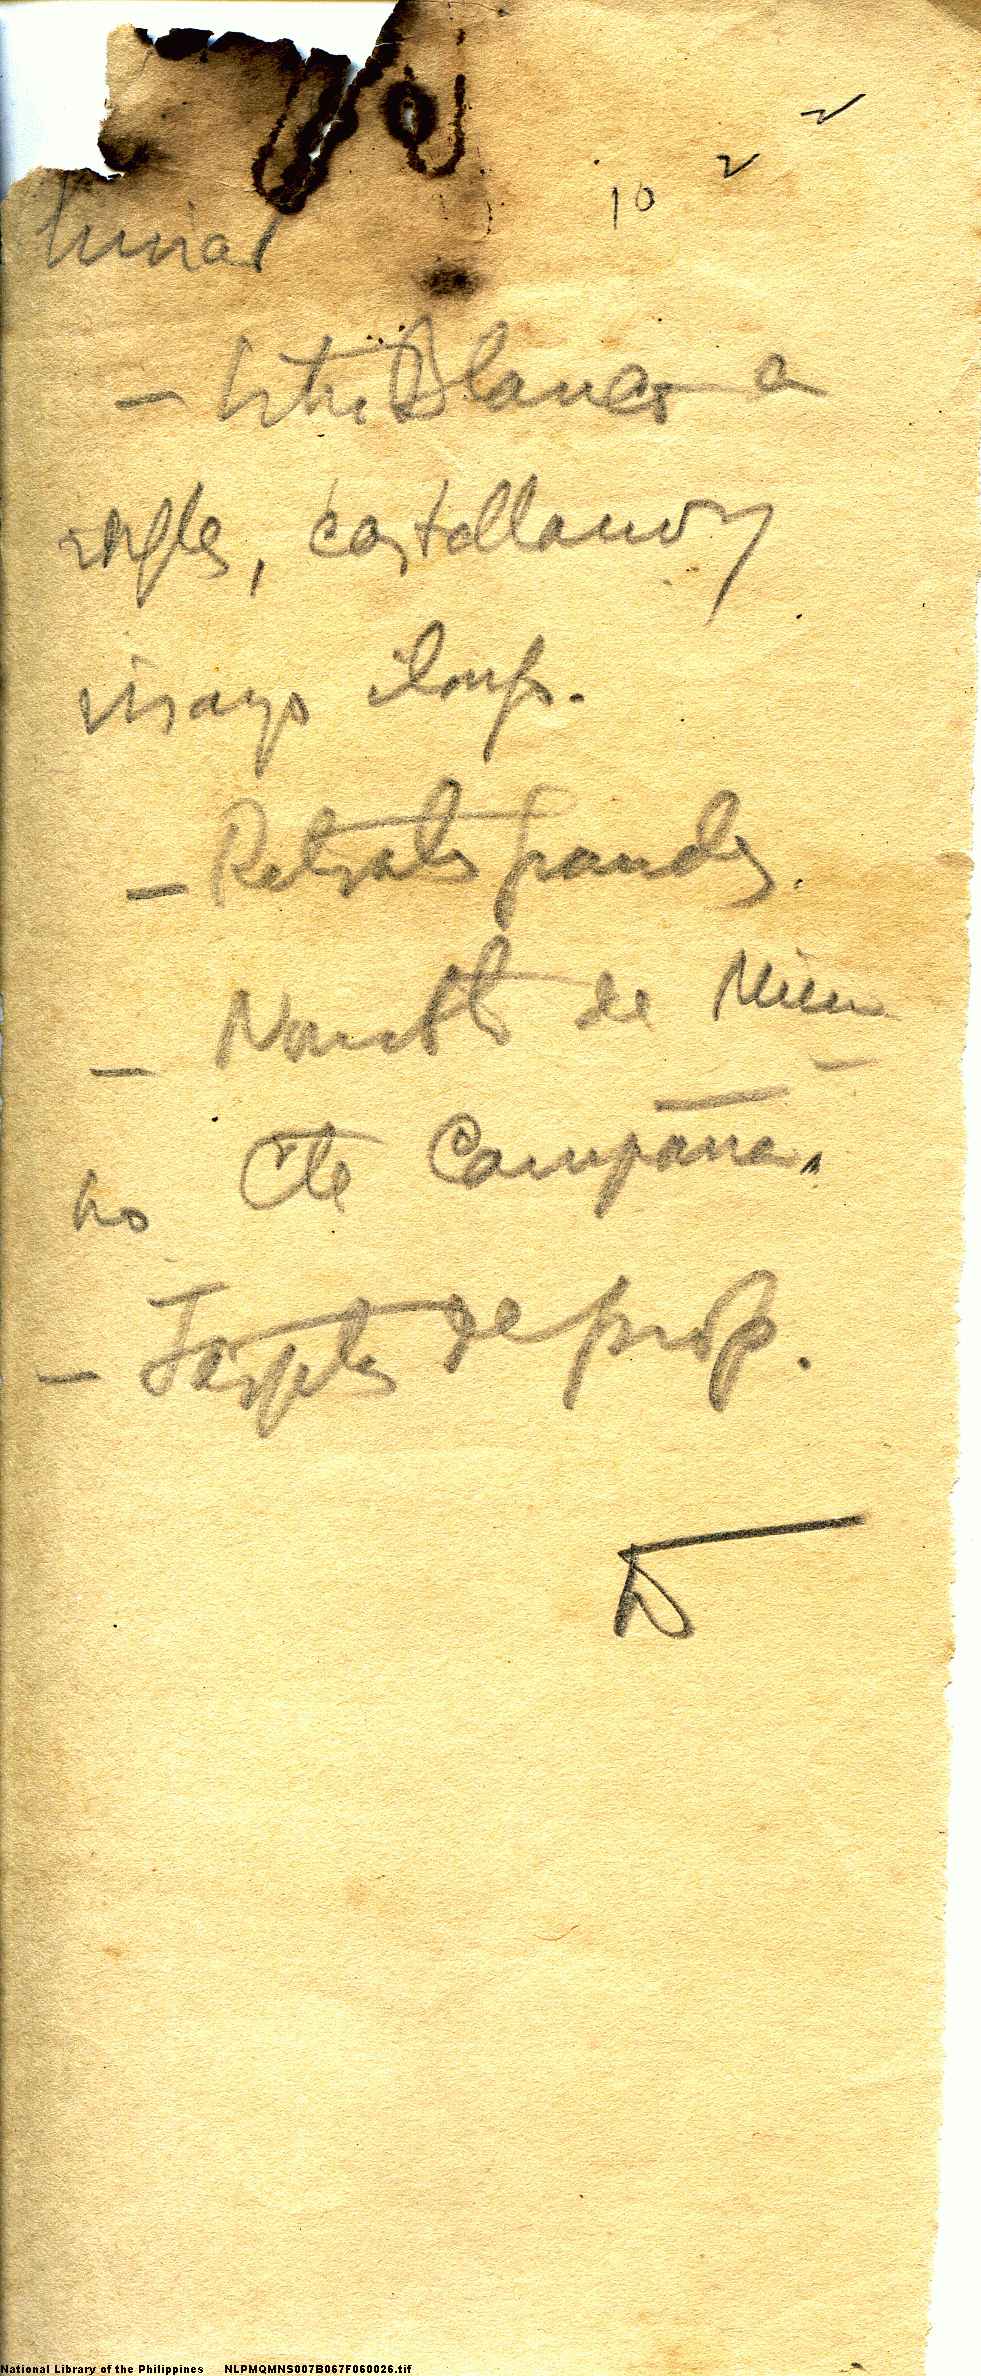 10
- Libro Blanco a
ingles, castellano y
visayo ilongo.
- Retratos grandes.
- Nombto de Miem
-
bro Cte Campaña.
- Tarjetas de prop.
National Library of the Philippines NLPMQMNS007B067F060026.tif